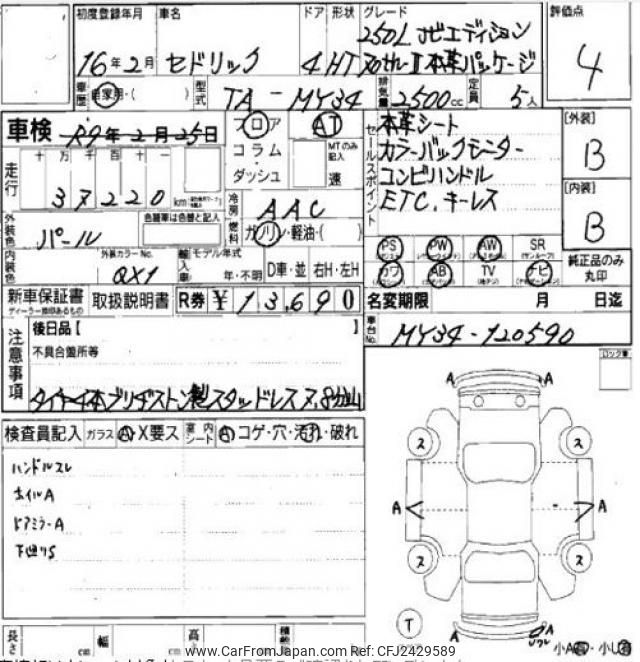 初度登録年月 車名 ドア 形状 グレード 評価点
16年2月 セドリック 4 HT 250L ナビエディション
本革パッケージ
4
車歴 自家用・( ) 型式 TA - MY34 排気量 2500cc 定員 5人
車検 R9年2月25日 フロア AT
コラム MTのみ記入
ダッシュ 速
セールスポイント 本革シート
カラーバックモニター
コンビハンドル
ETC. キーレス
[外装]
B
[内装]
B
走行 十 万 千 百 十 一
37220 km
冷房 AAC
外装色 パール 色替車は色替と記入
燃料 ガソリン・軽油・( )
内装色 外装カラーNo. QX1
輸入車 モデル年式 年・不明 D車・並 右H・左H
PS PW AW SR
(サンルーフ)
カワ AB TV ナビ
純正品のみ丸印
新車保証書 取扱説明書 R券 ¥13,690
ディーラー捺印あるもの
名変期限 月 日迄
車台No. MY34-120590
注意事項 後日品【
不具合箇所等
タイヤ4本ブリヂストン製スタッドレス 8分山
検査員記入 ガラス A・X要ス 室内シート A コゲ・穴・汚れ・破れ
ハンドルスレ
ホイルA
ドアミラーA
下廻りS
ロック車
A A
ス ス
A A
ス ス
T
A
長さ cm 幅 cm 高
www.CarFromJapan.com Ref: CFJ2429589